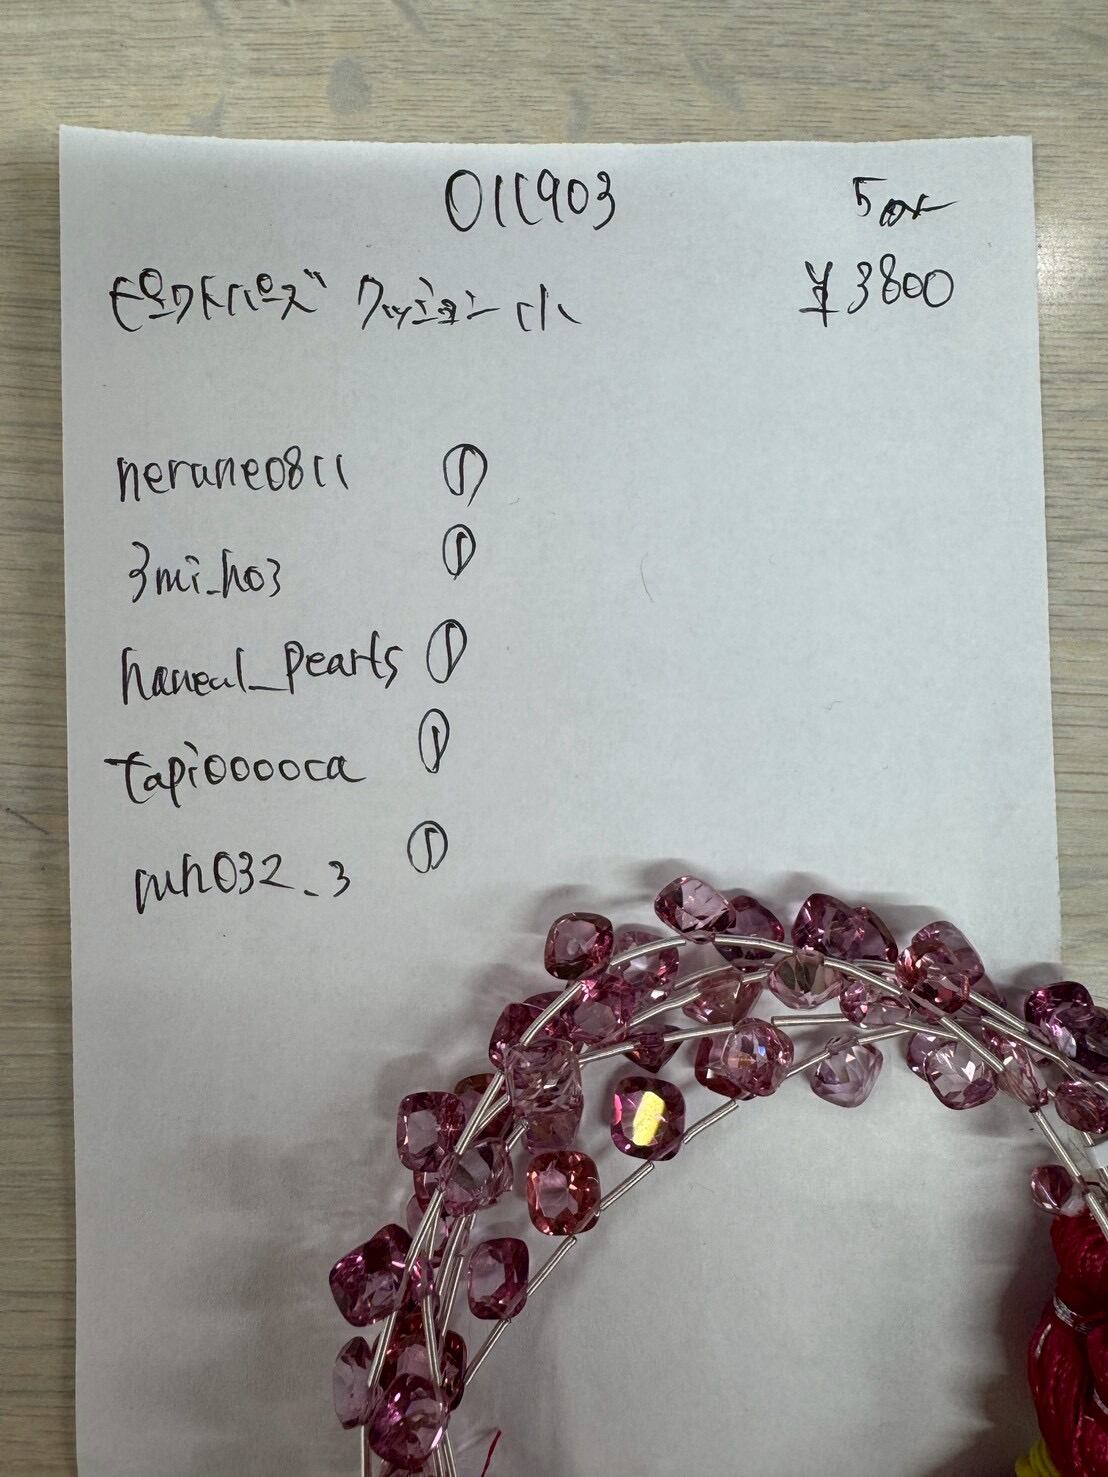 011903
5コ
¥3800
ピンクトパーズ クッション 小
nerune0811 ①
3mi_ho3 ①
haneul_pearls ①
tapi0000ca ①
mh032_3 ①